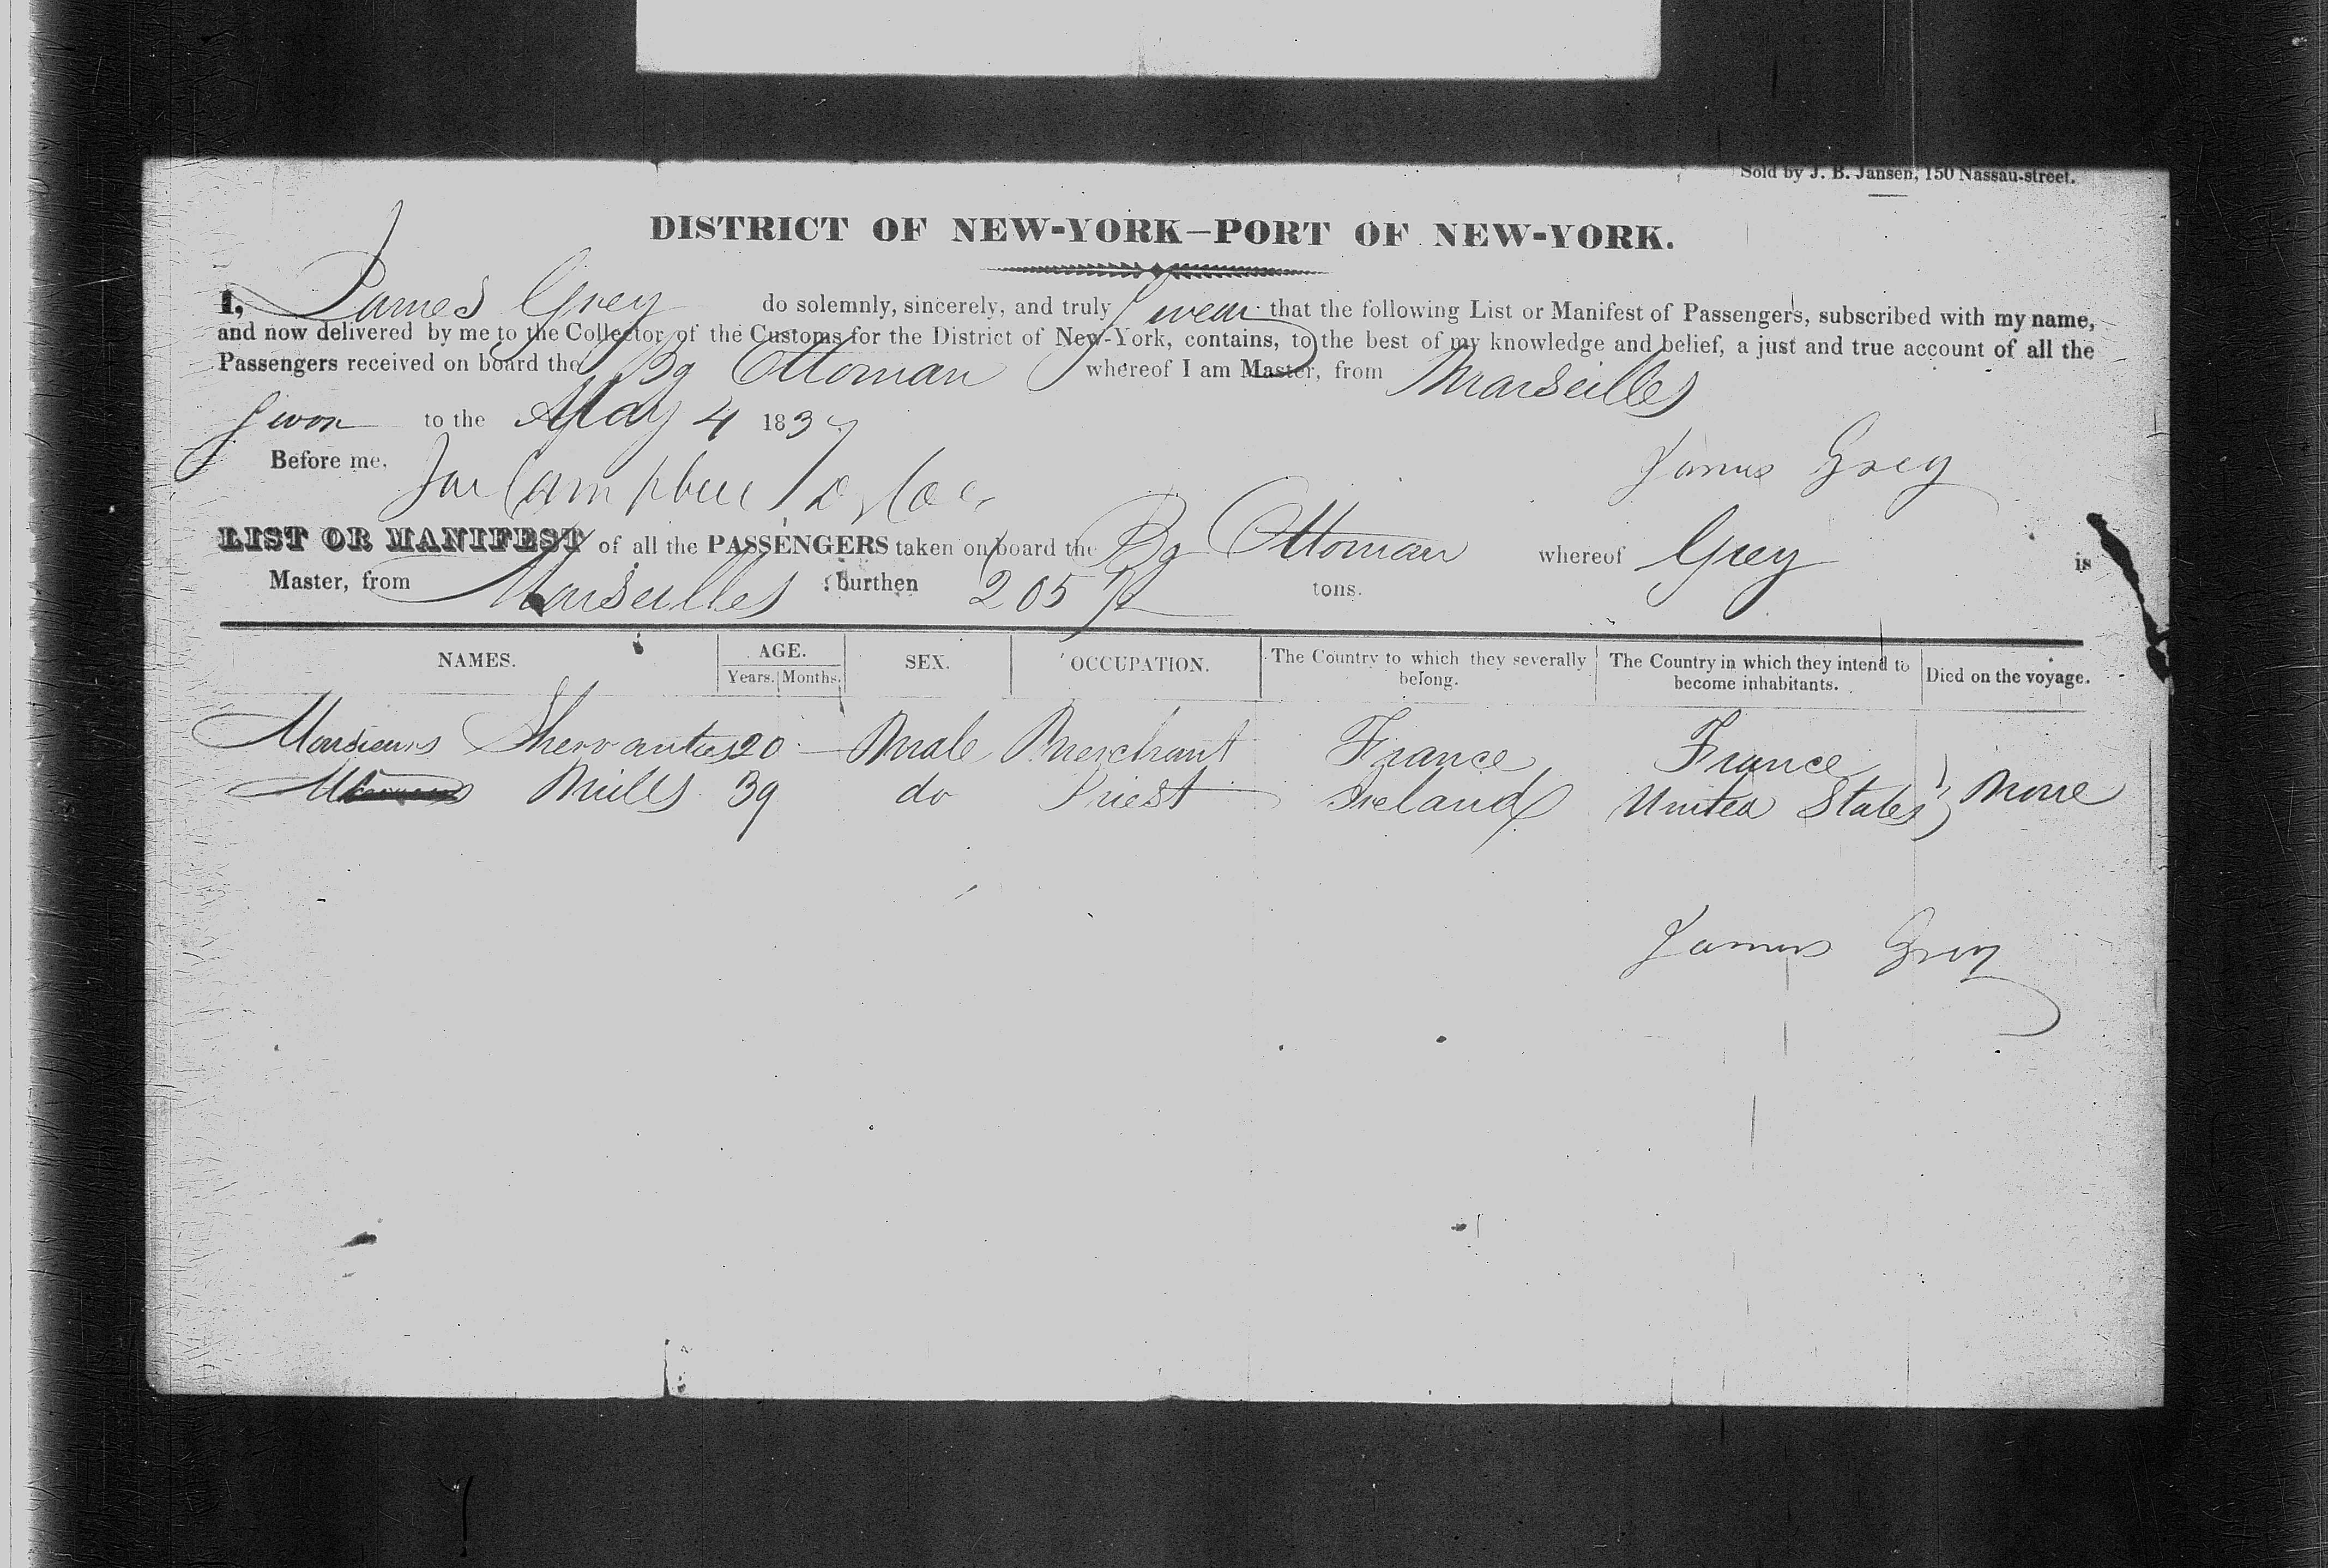 Sold by J. B. Jansen, 150 Nassau-street.
DISTRICT OF NEW-YORK—PORT OF NEW-YORK.
I, James Grey do solemnly, sincerely, and truly Swear that the following List or Manifest of Passengers, subscribed with my name,
and now delivered by me to the Collector of the Customs for the District of New-York, contains, to the best of my knowledge and belief, a just and true account of all the
Passengers received on board the Bg Ottoman whereof I am Master, from Marseilles
Sworn to the May 4 1837
James Grey
Before me, Campbell
LIST OR MANIFEST of all the PASSENGERS taken on board the Bg Ottoman whereof Grey is
Master, from Marseilles burthen 205 tons.
NAMES. AGE. Years. Months. SEX. OCCUPATION. The Country to which they severally belong. The Country in which they intend to become inhabitants. Died on the voyage.
Monsieurs 20 Male Merchant France France
M Mills 39 do Priest Ireland United States None
James Grey